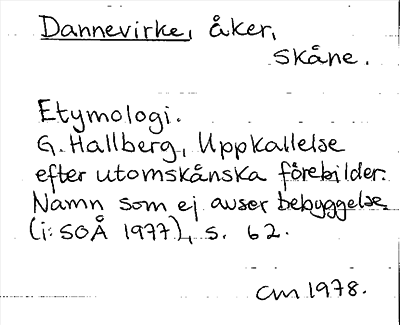 Dannevirke, åker,
Skåne.
Etymologi.
G. Hallberg, Uppkallelse
efter utomskånska förebilder.
Namn som ej avser bebyggelse.
(i: SOÅ 1977), s. 62.
CM 1978.